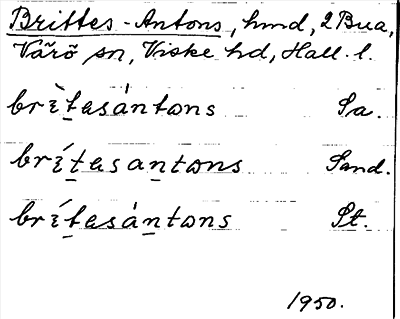 Brittes-Antons, hmd, 2 Bua,
Värö sn, Viske hd, Hall. l.
brìtasántons Sa.
brítasantons Sand.
brítasántons St.
1950.